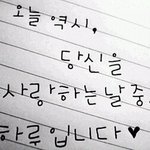 오늘 역시,
당신을
사랑하는 날 중,
하루 입니다 ♥